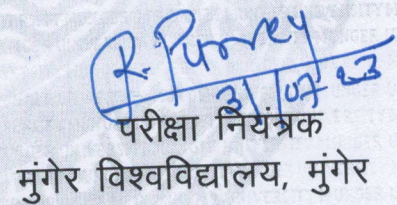 31/07/23
परीक्षा नियंत्रक
मुंगेर विश्वविद्यालय, मुंगेर